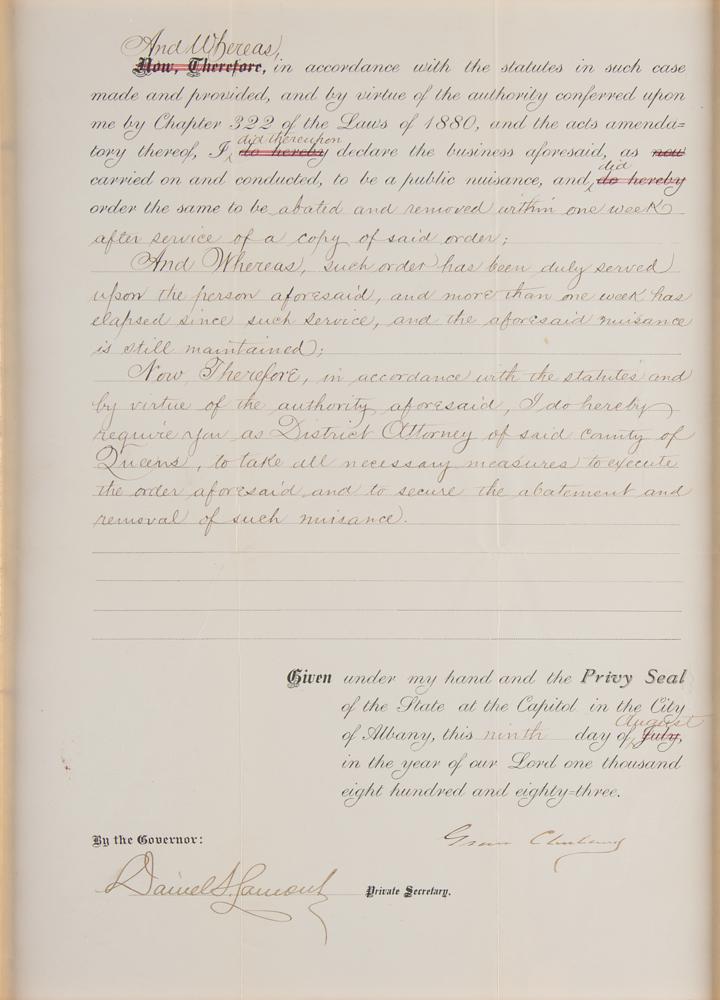 And Whereas,
Now, Therefore, in accordance with the statutes in such case
made and provided, and by virtue of the authority conferred upon
me by Chapter 322 of the Laws of 1880, and the acts amenda=
did thereupon
tory thereof, I do hereby declare the business aforesaid, as now
did
carried on and conducted, to be a public nuisance, and do hereby
order the same to be abated and removed within one week
after service of a copy of said order;
And Whereas, such order has been duly served
upon the person aforesaid, and more than one week has
elapsed since such service, and the aforesaid nuisance
is still maintained;
Now, Therefore, in accordance with the statutes and
by virtue of the authority aforesaid, I do hereby
require you as District Attorney of said county of
Queens, to take all necessary measures to execute
the order aforesaid and to secure the abatement and
removal of such nuisance.
Given under my hand and the Privy Seal
of the State at the Capitol in the City
August
of Albany, this ninth day of July,
in the year of our Lord one thousand
eight hundred and eighty=three.
By the Governor:
Grover Cleveland
Daniel S. Lamont
Private Secretary.